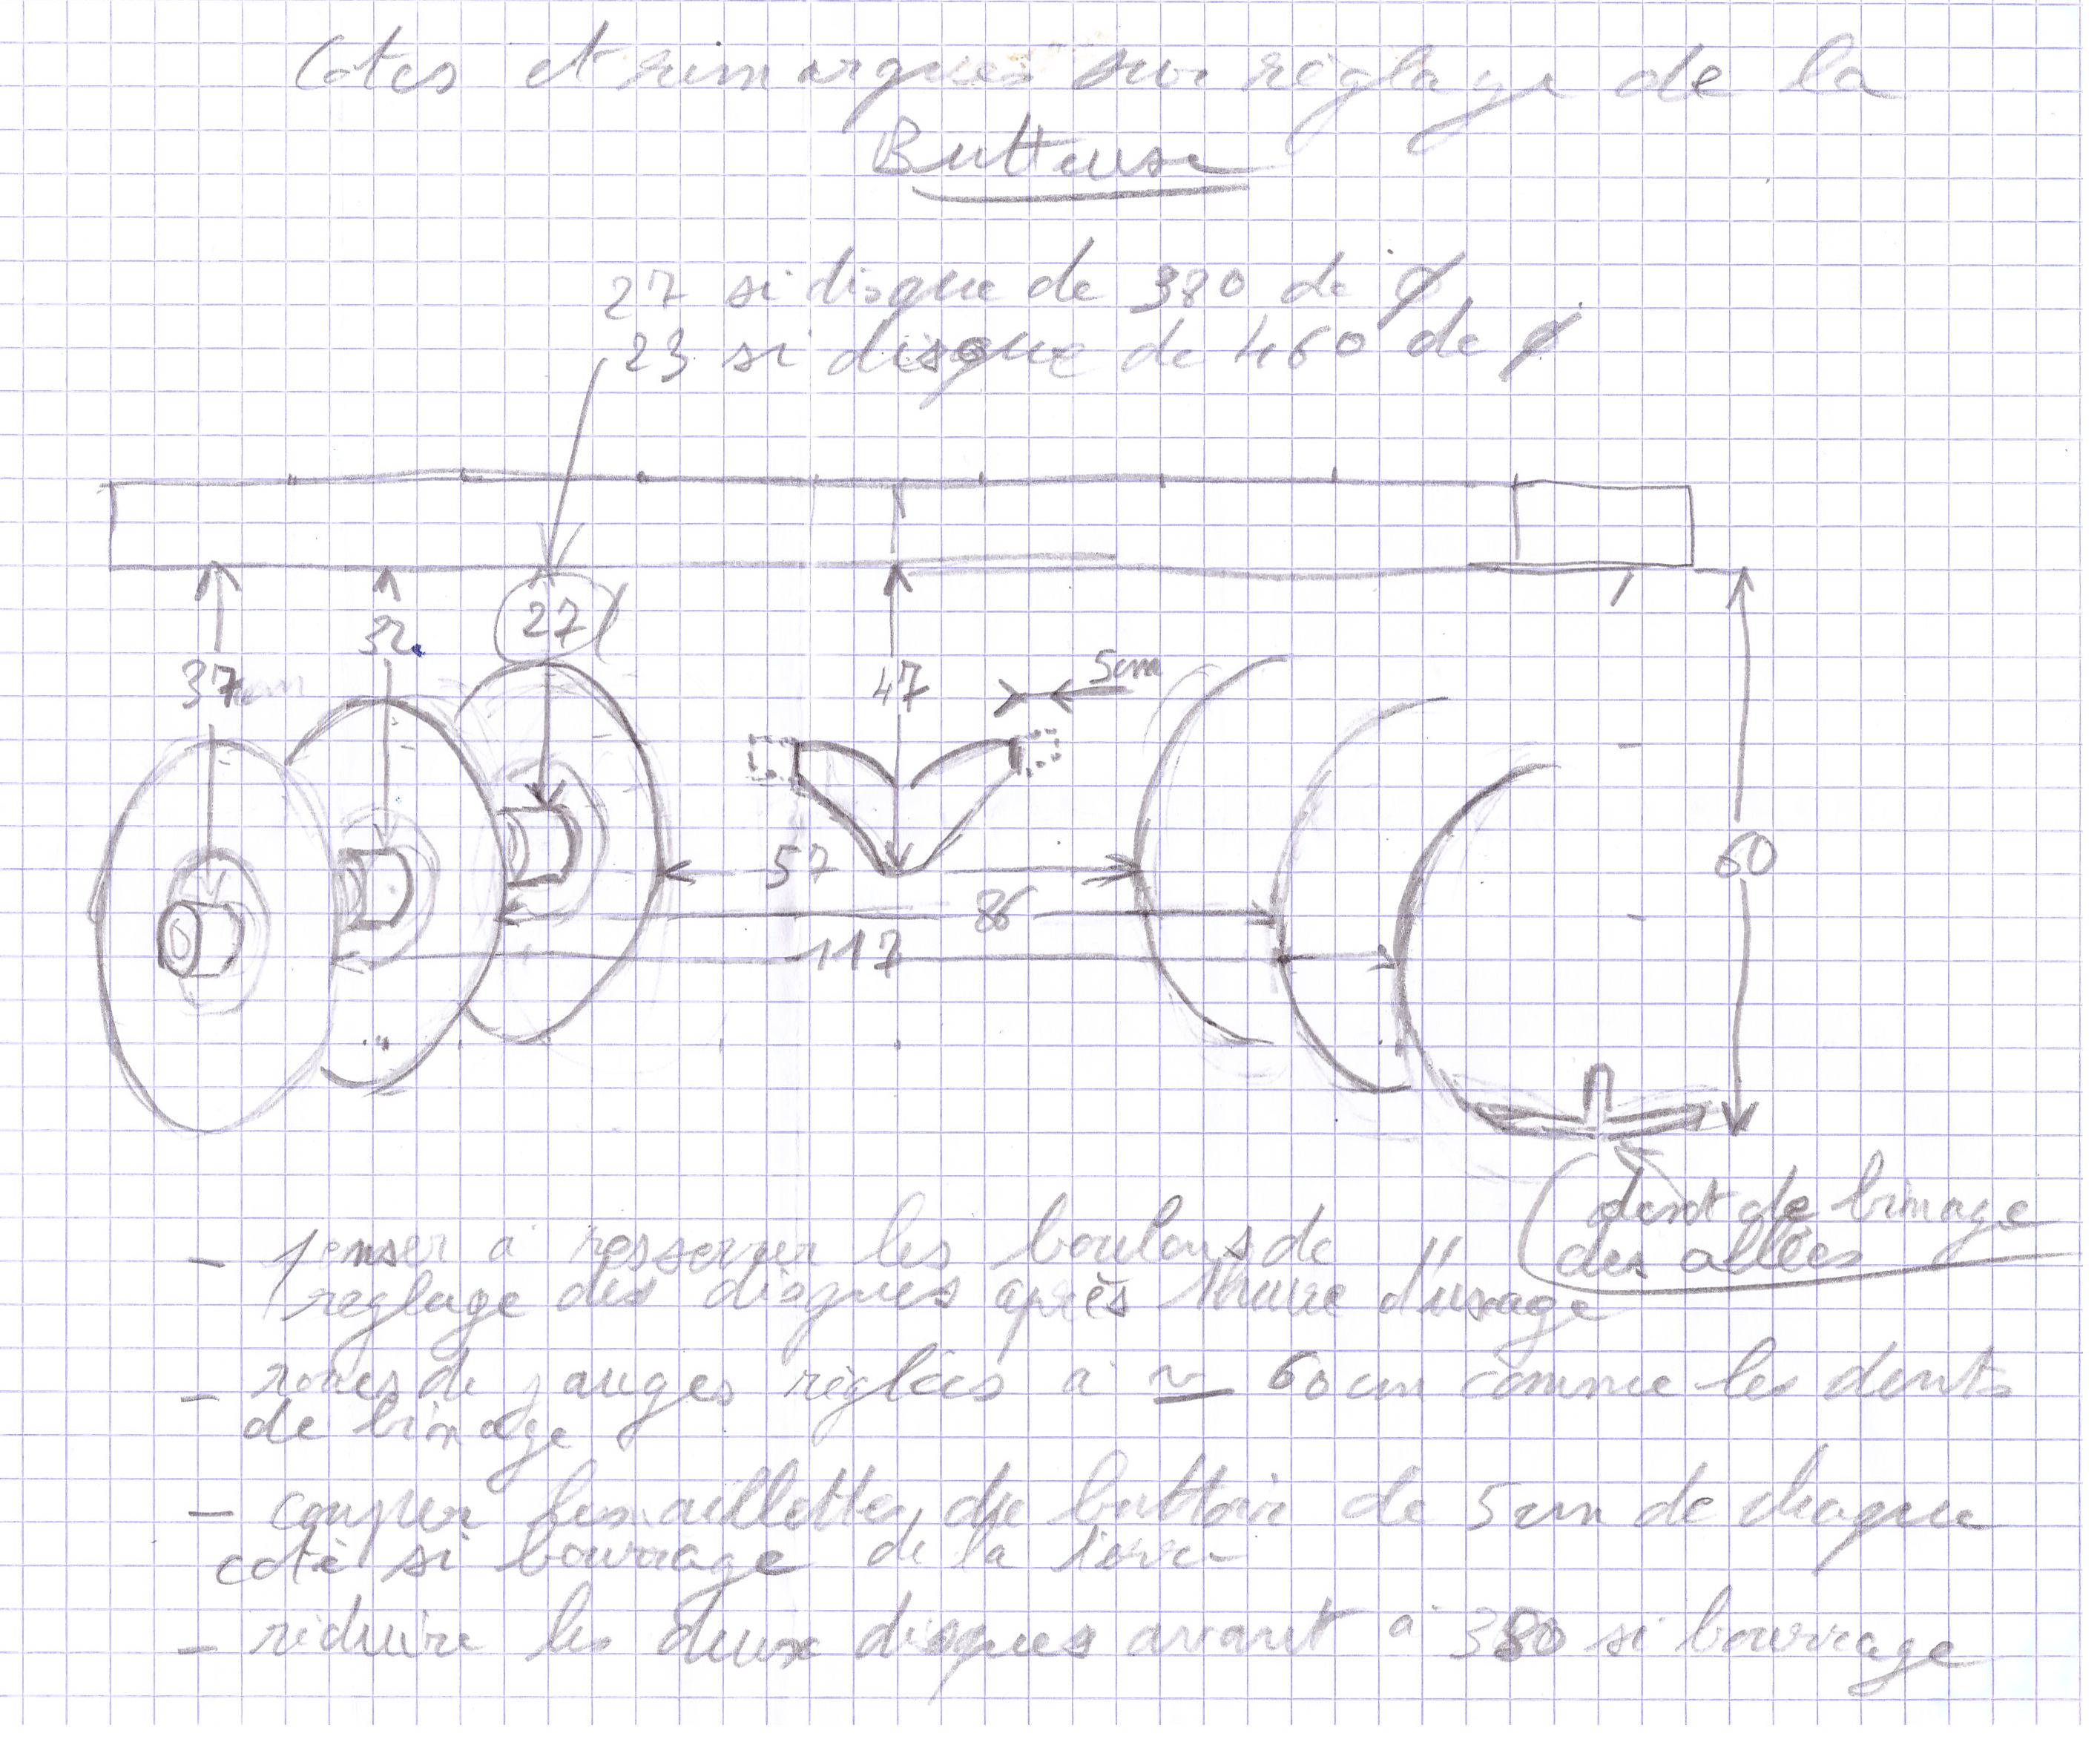 Cotes et remarques sur réglage de la
Butteuse
27 si disque de 380 de ø
23 si disque de 460 de ø
27
32
37
47
5cm
57
86
117
60
dent de binage
des allées
- penser à resserrer les boulons de
réglage des disques après 1 heure d'usage
- roues de jauges réglées à ~ 60 cm comme les dents
de binage
- couper les aillettes du buttoir de 5 cm de chaque
coté si bourrage de la terre
- réduire les deux disques avant à 380 si bourrage